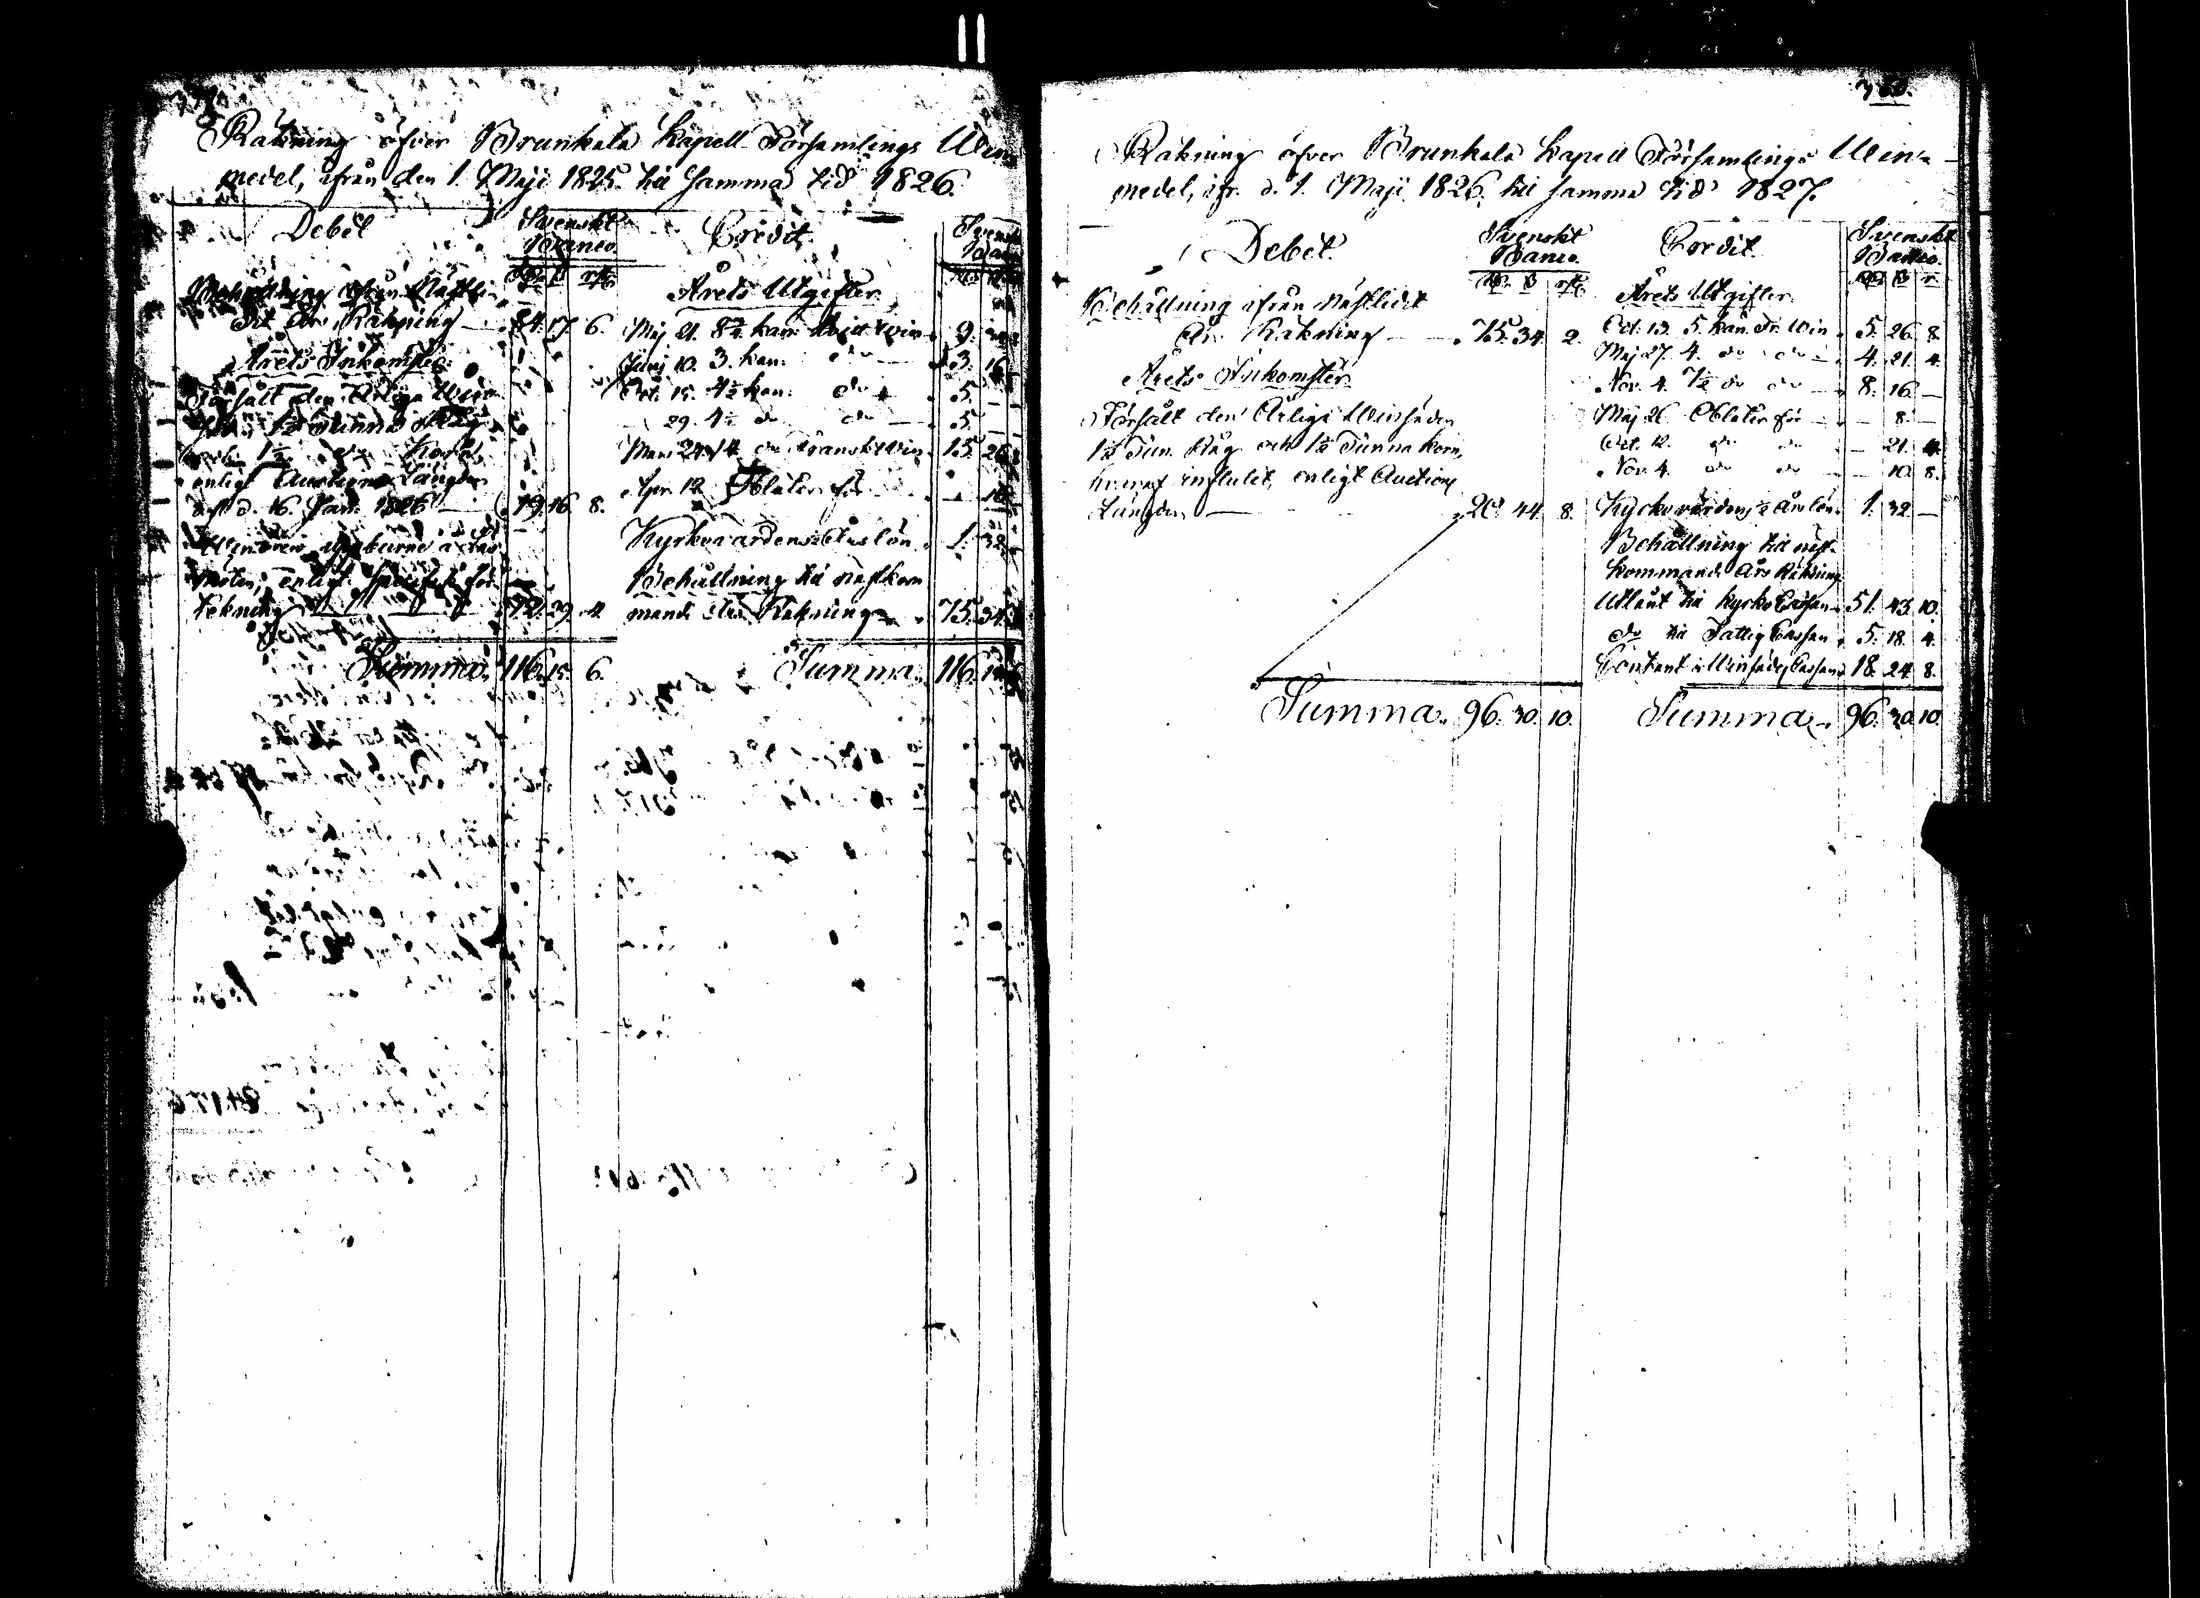 Räkning öfver Brunkala Kapell Församlings Win
medel, ifrån den 1. Maji 1825. till samma tid 1826.
Debet
Svenskt
Banco
Credit
Svenskt
Banco
Behållning ifrån Nästli-
dit års Räkning 84. 17 6.
Årets Inkomster
Försålt den Årliga Win
1½ Tunna Råg
och 1½ do Korn,
enligt Auctions Längden
af d. 16. Jan. 1826 19. 16. 8.
enligt
tekning 12. 29. 4.
Summa. 116. 15. 6.
Årets Utgifter
Maj 21. 8¾ kan. hvitt win 9.
Junij 10. 3. kan. do 3. 16
Oct. 15. 4½ kan: do 5. —
29. 4½ do do 5. —
Mars 24. 14 do Franskt win 15. 26
Apr. 12 Oblater för — 16
Kyrkovärdens Årslön 1. 32
Behållning till nästkom
mande års Räkning 75. 34.
Summa. 116. 15
360.
Räkning öfver Brunkala Kapell Församlings Win-
medel, ifr. d. 1. Maji 1826. till samma tid 1827.
Debet.
Svenskt
Banco.
Credit
Svenskt
Banco.
Behållning ifrån nästlidit
års Räkning — 75. 34. 2.
Årets Inkomster.
Försålt den Årliga Winsäden
1½ Tun. Råg och 1½ Tunna Korn,
hvaraf influtit, enligt Auctions
Längden — 20. 44. 8.
Summa. 96. 30. 10.
Årets Utgifter.
Oct. 13. 5. kan. Fr. Win 5. 26. 8.
Maj 27. 4. do do 4. 21. 4.
Nov. 4. 7½ do do 8. 16. —
Maj 26 Oblater för — 8. —
Oct. 12. do do — 21. 4.
Nov. 4. do do — 10. 8.
Kyrkovärdens Årslön 1. 32. —
Behållning till näst-
kommande Års Räkning
Utlånt till Kyrko Cassan 51. 43. 10.
do till Fattig Cassan 5. 18. 4.
Contant i Winsädes Cassan 18. 24. 8.
Summa. 96. 30. 10.